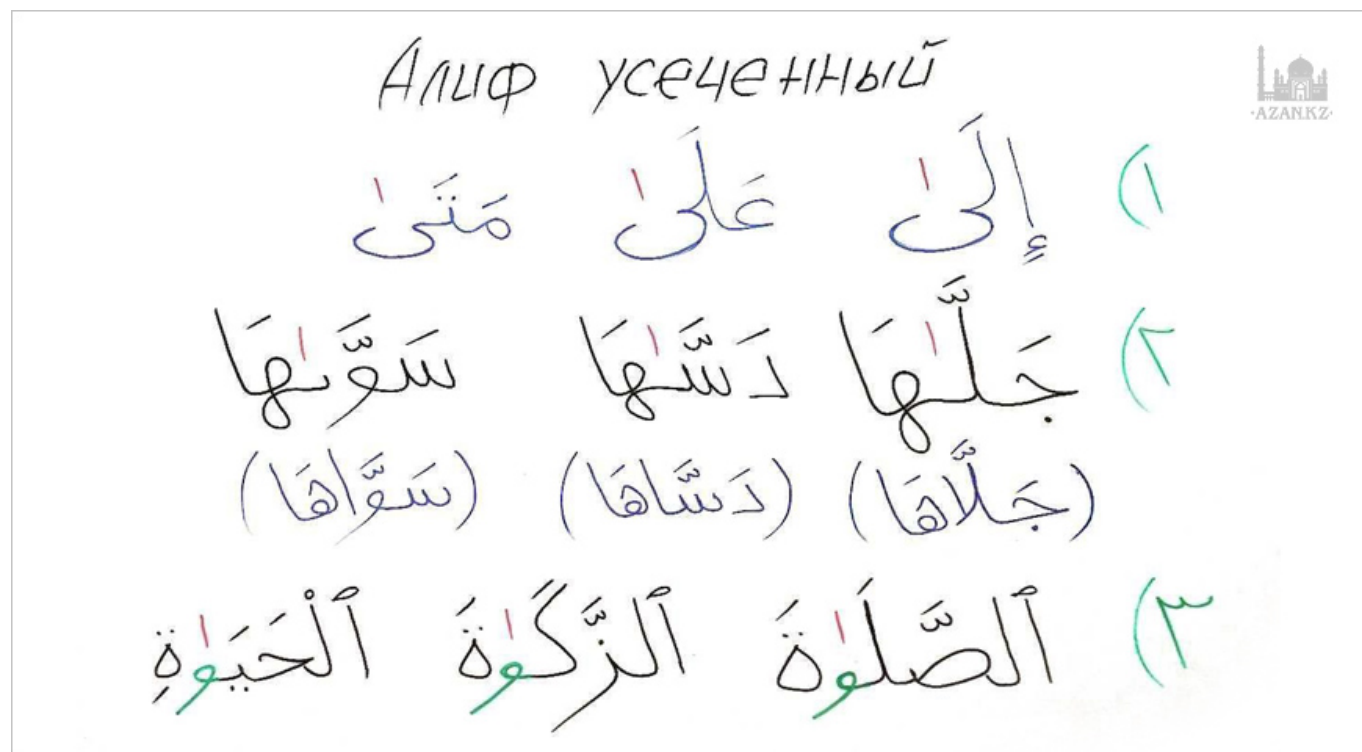 Алиф усеченный
·AZAN.KZ·
١) إِلَىٰ عَلَىٰ مَتَىٰ
٢) جَلَّىٰهَا دَسَّىٰهَا سَوَّىٰهَا
(جَلَّاهَا) (دَسَّاهَا) (سَوَّاهَا)
٣) ٱلصَّلَوٰةَ ٱلزَّكَوٰةَ ٱلْحَيَوٰةِ